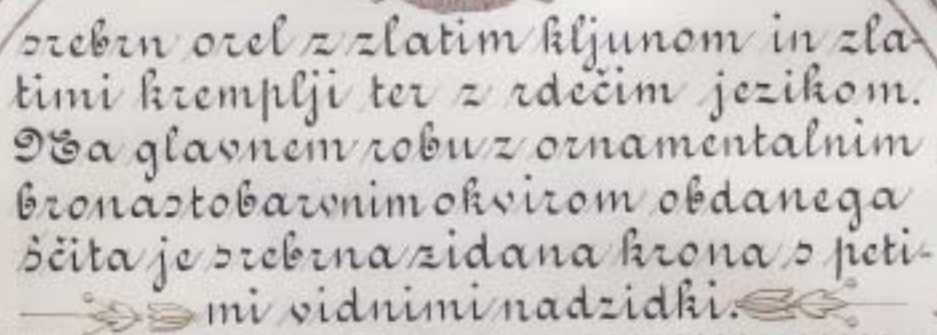 srebrn orel z zlatim kljunom in zla-
timi kremplji ter z rdečim jezikom.
Na glavnem robu z ornamentalnim
bronastobarvnim okvirom obdanega
ščita je srebrna zidana krona s peti-
mi vidnimi nadzidki.